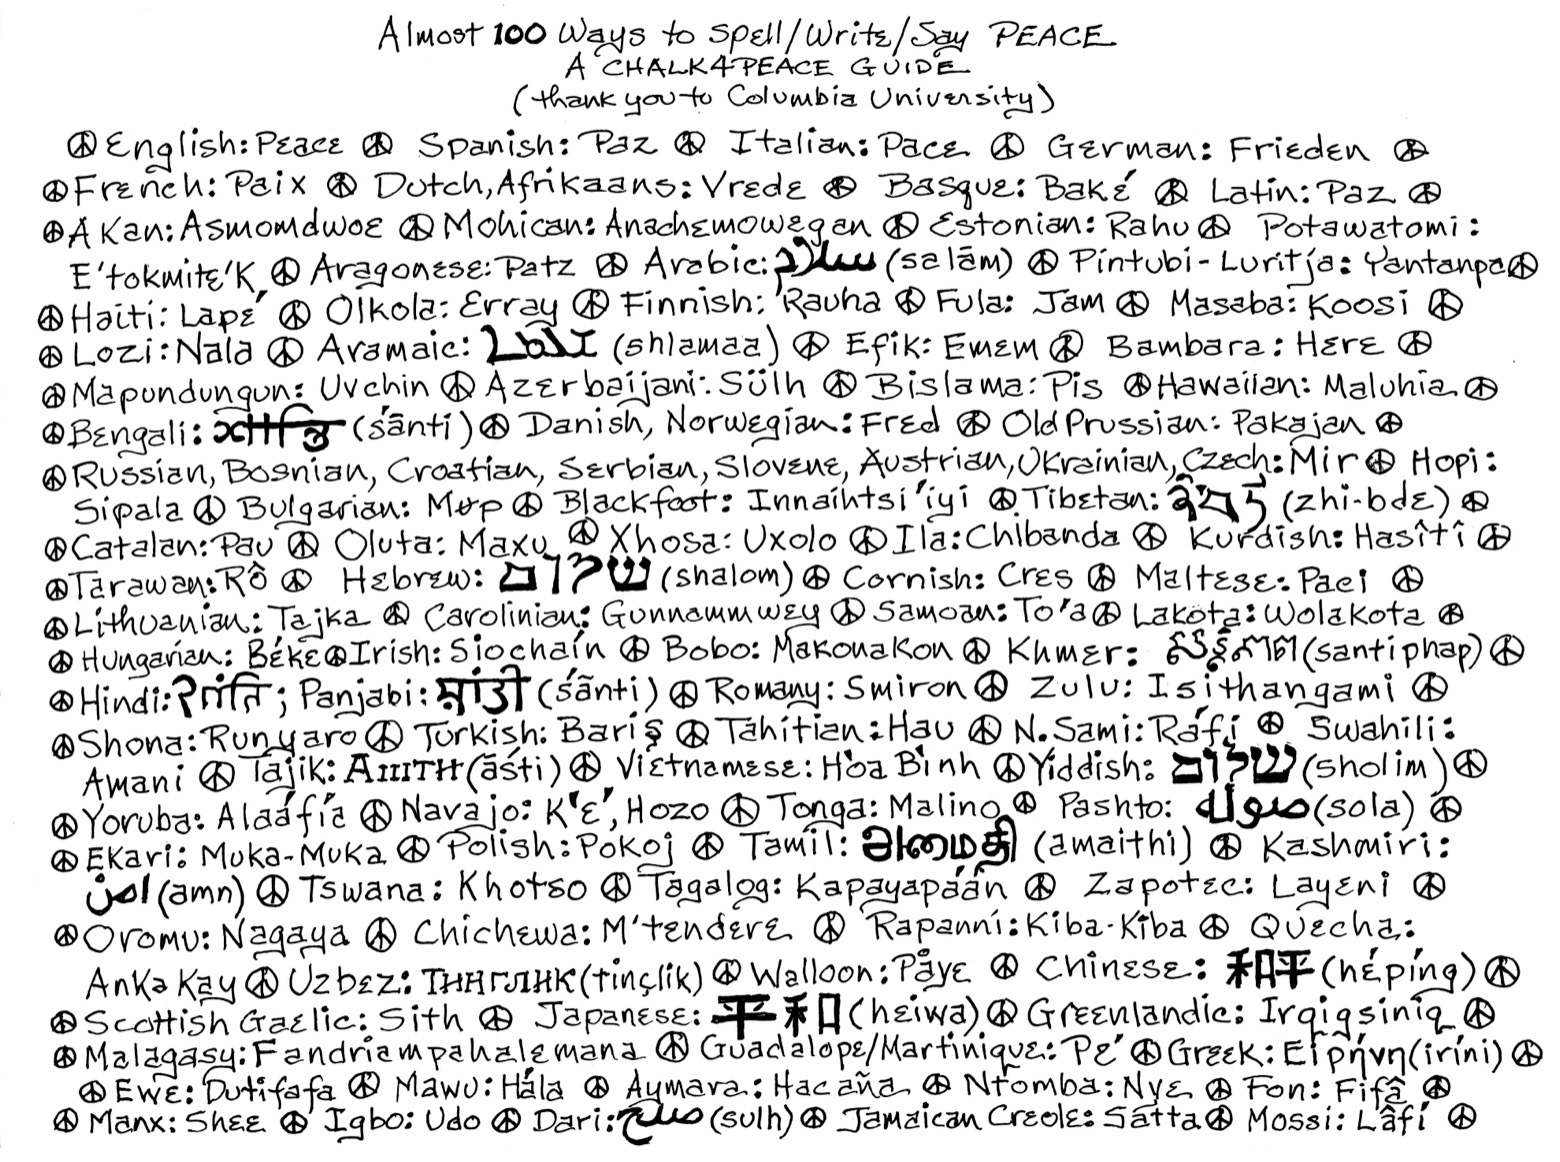 Almost 100 Ways to Spell/Write/Say PEACE
A CHALK4PEACE GUIDE
(thank you to Columbia University)
☮ English: Peace ☮ Spanish: Paz ☮ Italian: Pace ☮ German: Frieden ☮
☮ French: Paix ☮ Dutch, Afrikaans: Vrede ☮ Basque: Baké ☮ Latin: Paz ☮
☮ Akan: Asmomdwoe ☮ Mohican: Anachemowegan ☮ Estonian: Rahu ☮ Potawatomi:
E'tokmite'K ☮ Aragonese: Patz ☮ Arabic: سلام (salām) ☮ Pintubi-Luritja: Yantanpa ☮
☮ Haiti: Lapé ☮ Olkola: Erray ☮ Finnish: Rauha ☮ Fula: Jam ☮ Masaba: Koosi ☮
☮ Lozi: Nala ☮ Aramaic: (shlamaa) ☮ Efik: Emem ☮ Bambara: Here ☮
☮ Mapundungun: Uvchin ☮ Azerbaijani: Sülh ☮ Bislama: Pis ☮ Hawaiian: Maluhia ☮
☮ Bengali: শান্তি (śānti) ☮ Danish, Norwegian: Fred ☮ Old Prussian: Pakajan ☮
☮ Russian, Bosnian, Croatian, Serbian, Slovene, Austrian, Ukrainian, Czech: Mir ☮ Hopi:
Sipala ☮ Bulgarian: Мир ☮ Blackfoot: Innaihtsi'iyi ☮ Tibetan: (zhi-bde) ☮
☮ Catalan: Pau ☮ Oluta: Maxu ☮ Xhosa: Uxolo ☮ Ila: Chibanda ☮ Kurdish: Hasîtî ☮
☮ Tarawan: Rô ☮ Hebrew: שלום (shalom) ☮ Cornish: Cres ☮ Maltese: Paci ☮
☮ Lithuanian: Tajka ☮ Carolinian: Gunnammwey ☮ Samoan: To'a ☮ Lakota: Wolakota ☮
☮ Hungarian: Béke ☮ Irish: Siochaín ☮ Bobo: Makonakon ☮ Khmer: (santiphap) ☮
☮ Hindi: शांति; Panjabi: ਸ਼ਾਂਤੀ (śānti) ☮ Romany: Smiron ☮ Zulu: Isithangami ☮
☮ Shona: Runyaro ☮ Turkish: Bariş ☮ Tahitian: Hau ☮ N. Sami: Ráfi ☮ Swahili:
Amani ☮ Tajik: Ашти (āśti) ☮ Vietnamese: Hòa Bình ☮ Yiddish: שלום (sholim) ☮
☮ Yoruba: Alaáfía ☮ Navajo: K'é', Hozo ☮ Tonga: Malino ☮ Pashto: سوله (sola) ☮
☮ Ekari: Muka-Muka ☮ Polish: Pokoj ☮ Tamil: அமைதி (amaithi) ☮ Kashmiri:
امن (amn) ☮ Tswana: Khotso ☮ Tagalog: Kapayapáán ☮ Zapotec: Layeni ☮
☮ Oromu: Nagaya ☮ Chichewa: M'tendere ☮ Rapanní: Kiba-Kiba ☮ Quecha:
Anka Kay ☮ Uzbez: Тинглик (tinçlik) ☮ Walloon: Påye ☮ Chinese: 和平 (hépíng) ☮
☮ Scottish Gaelic: Sith ☮ Japanese: 平和 (heiwa) ☮ Greenlandic: Irqigsiniq ☮
☮ Malagasy: Fandriampahalemana ☮ Guadalope/Martinique: Pé ☮ Greek: Ειρήνη (iríni) ☮
☮ Ewe: Dutifafa ☮ Mawu: Hála ☮ Aymara: Hacaña ☮ Ntomba: Nye ☮ Fon: Fifâ ☮
☮ Manx: Shee ☮ Igbo: Udo ☮ Dari: صلح (sulh) ☮ Jamaican Creole: Satta ☮ Mossi: Lâfí ☮